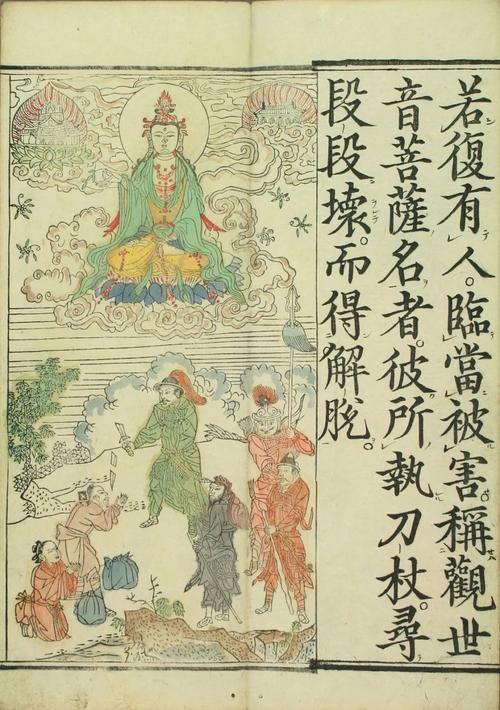 若復有人。臨當被害。稱觀世
音菩薩名者。彼所執刀杖。尋
段段壞。而得解脫。